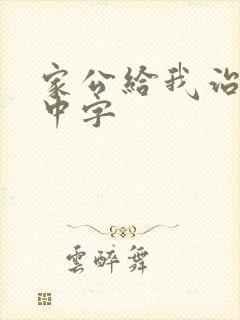 家公給我治
中字
雲醉舞